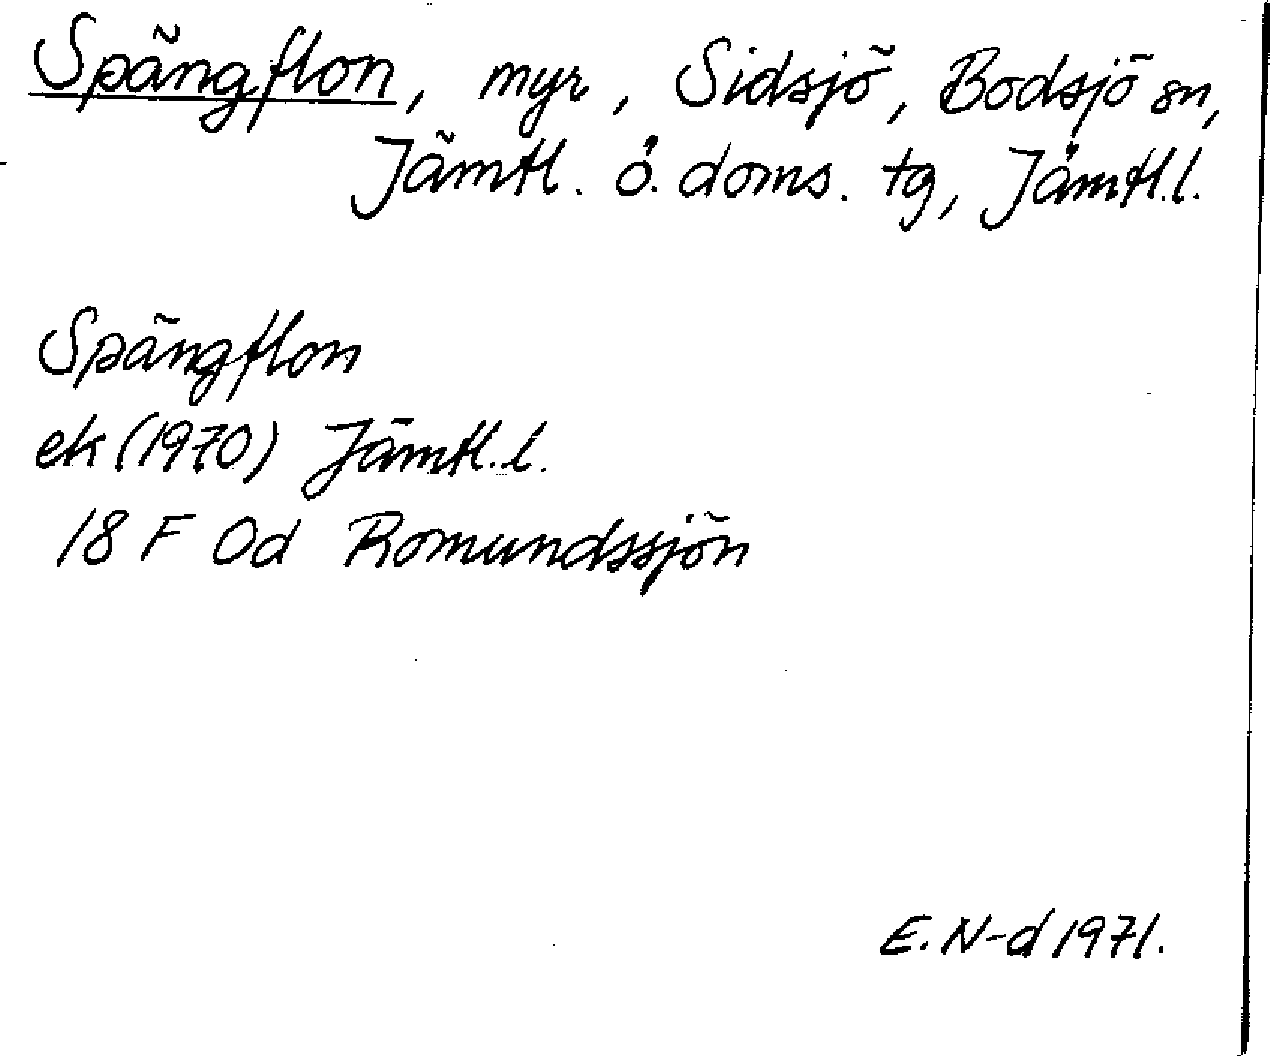 Spängflon, myr, Sidsjö, Bodsjö sn,
Jämtl. ö. doms. tg, Jämtl.l.
Spängflon
ek (1970) Jämtl.l.
18 F Od Romundssjön
E. N-d 1971.